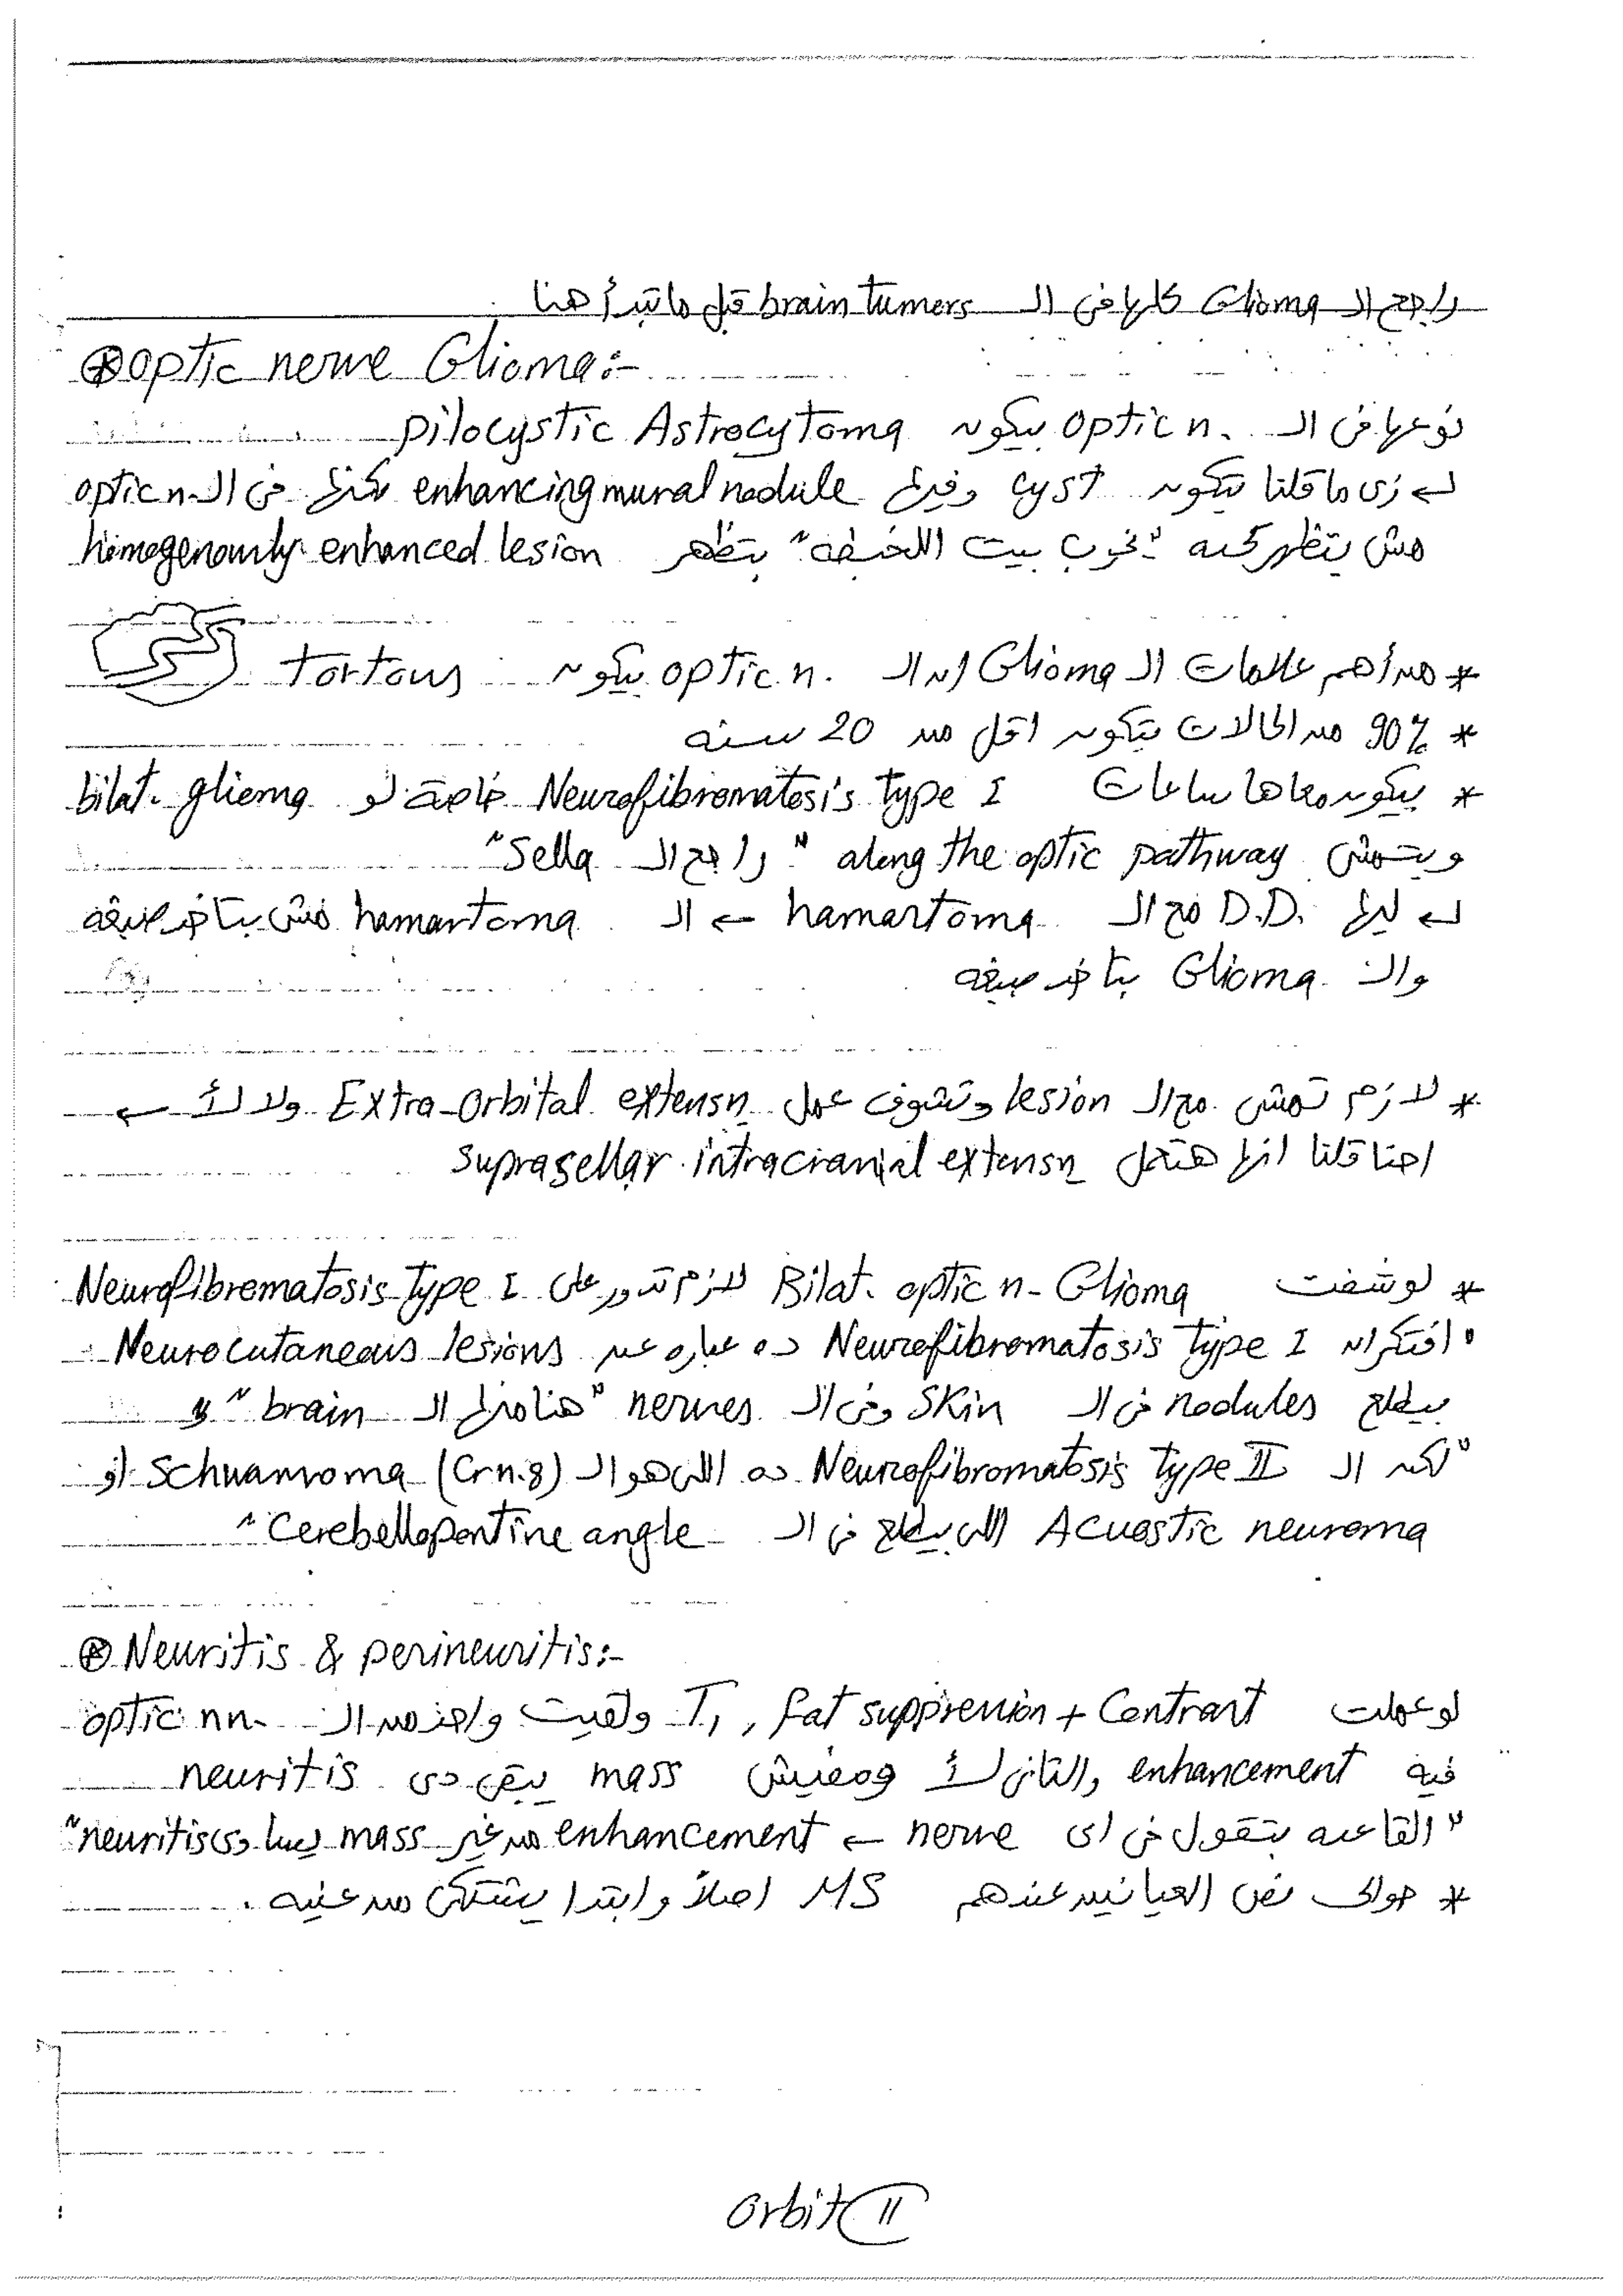 راجع ال Glioma كلها فى ال brain tumers قبل ما تبدأ هنا
⊛ optic nerve Glioma:-
نوعها فى ال optic n. بيكون pilocystic Astrocytoma
↲ زى ما قلنا بتكون cyst وفيها enhancing mural nodule لكنها فى ال optic n.
مش بتظهر كده "تخرب بيت اللخبطه" بتظهر homogenously enhanced lesion
* من أهم علامات ال Glioma ان ال optic n. بيكون tortous
* 90% من الحالات بتكون اقل من 20 سنه
* بيكون معاها ساعات Neurofibromatosis type I خاصة لو bilat. glioma
وبتمشى along the optic pathway "راجع ال Sella"
↲ ليها D.D. مع ال hamartoma ← ال hamartoma مش بتاخد صبغه
وال Glioma بتاخد صبغه
* لازم تمشى مع ال lesion وتشوف عمل Extra-orbital extensn ولا لأ ←
احنا قلنا انها هتعمل suprasellar intracranial extensn
* لو شفت Bilat. optic n. Glioma لازم تدور على Neurofibromatosis type I
" افتكر ان Neurofibromatosis type I ده عباره عن Neurocutaneous lesions
بيطلع nodules فى ال skin وفى ال nerves "هنا منها ال brain" "
"لكن ال Neurofibromatosis type II ده اللى هو ال Schwannoma (Cr n.8) أو
Acuostic neuroma اللى بيطلع فى ال Cerebellopontine angle "
⊛ Neuritis & perineuritis:-
لو عملت T1, fat suppression + Contrast ولقيت واحد من ال optic nn.
فيه enhancement والتانى لأ ومفيش mass يبقى دى neuritis
"القاعده بتقول فى اى nerve ← enhancement من غير mass يبقى دى neuritis"
* حوالى نص العيانين عندهم MS اصلاً وابتدا يشتكى من عنيه .
orbit 11